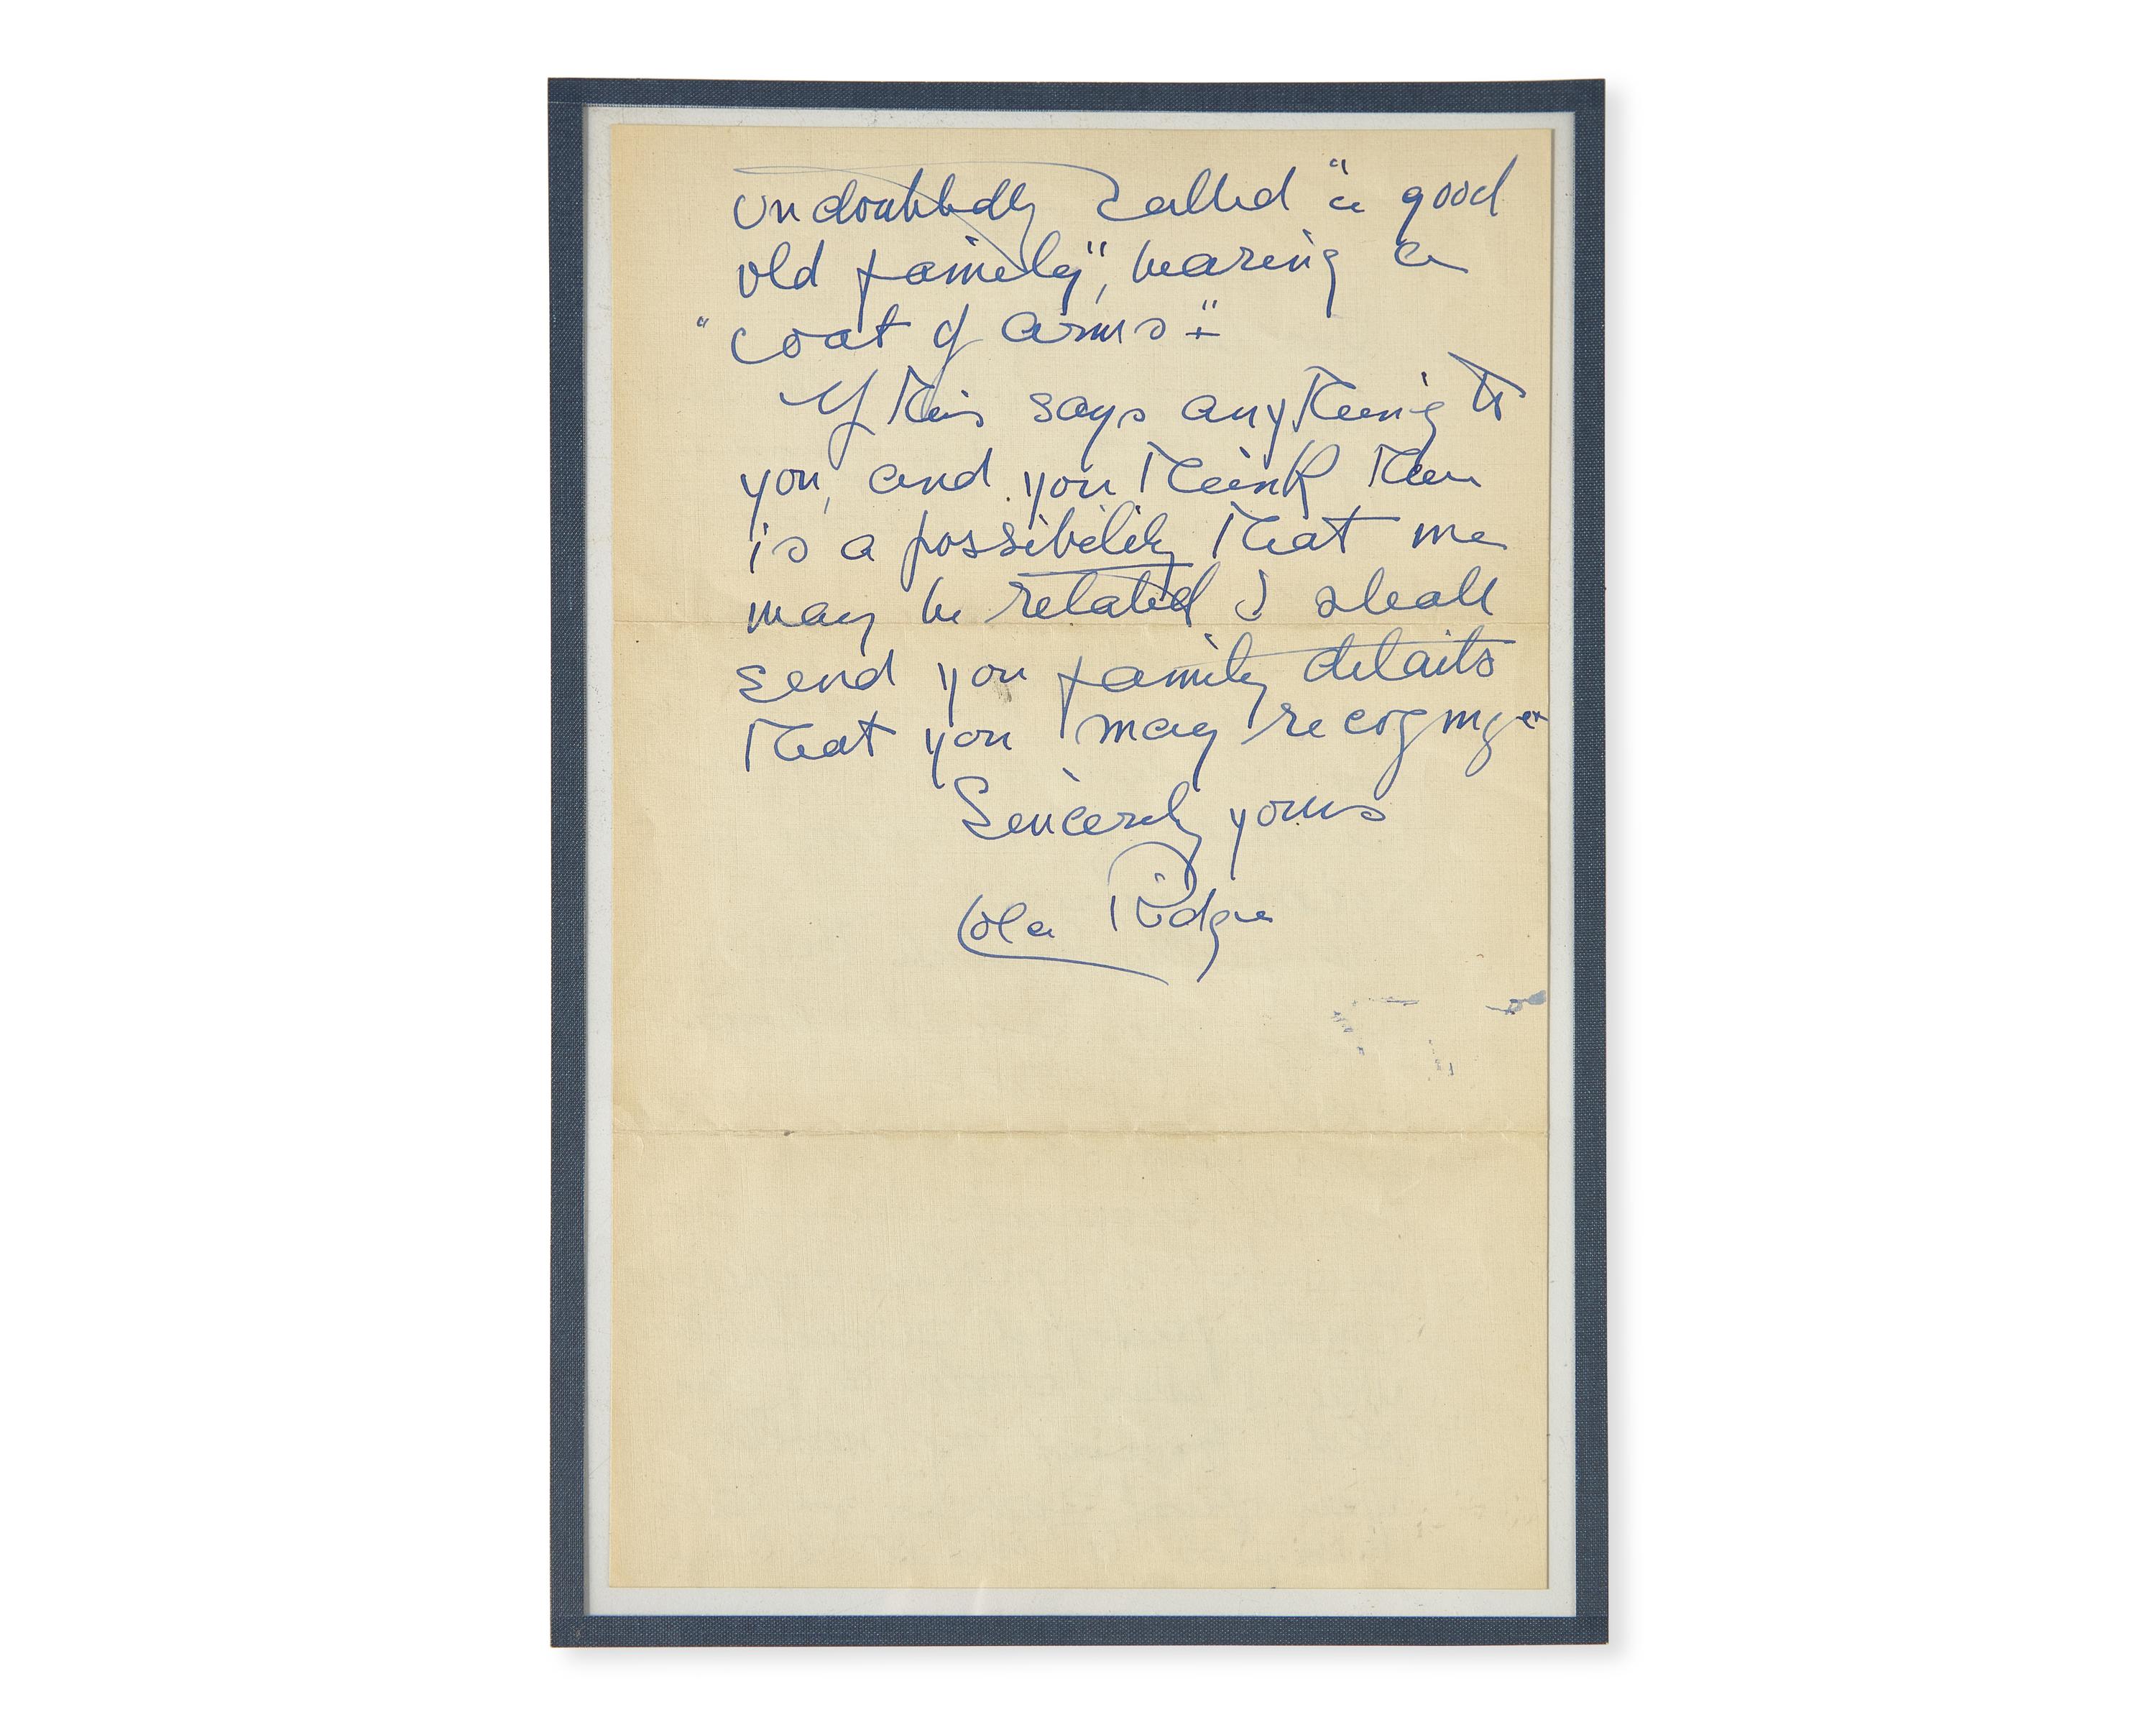 undoubtedly called "a good
old family", bearing a
"coat of arms".
If this says anything to
you, and you think there
is a possibility that we
may be related I shall
send you family details
that you may recognize
Sincerely yours
Lola Ridge